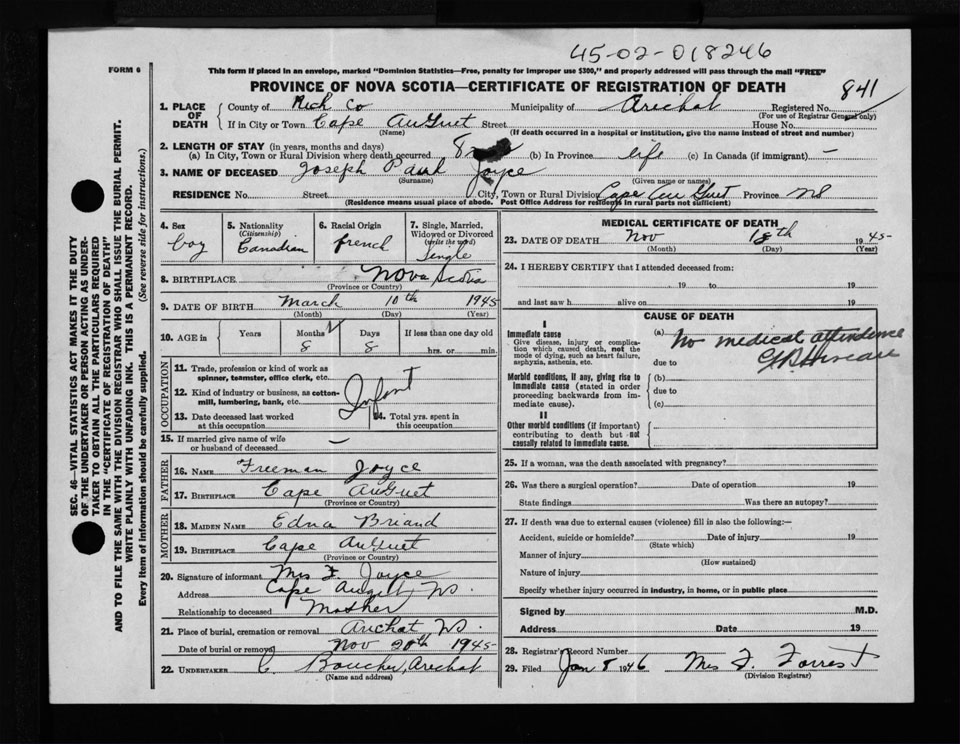 45-02-018246
FORM 6
This form if placed in an envelope, marked "Dominion Statistics—Free, penalty for improper use $300," and properly addressed will pass through the mail "FREE"
PROVINCE OF NOVA SCOTIA—CERTIFICATE OF REGISTRATION OF DEATH
841
1. PLACE OF DEATH County of Rich Co Municipality of Arichat Registered No.
(For use of Registrar General only)
If in City or Town Cape AuGuet Street House No.
(Name) (If death occurred in a hospital or institution, give the name instead of street and number)
2. LENGTH OF STAY (in years, months and days)
(a) In City, Town or Rural Division where death occurred 8 (b) In Province life (c) In Canada (if immigrant) —
3. NAME OF DECEASED Joseph Paul Joyce
(Surname) (Given name or names)
RESIDENCE No. Street City, Town or Rural Division Cape AuGuet Province NS
(Residence means usual place of abode. Post Office Address for residents in rural parts not sufficient)
4. Sex boy
5. Nationality (Citizenship) Canadian
6. Racial Origin french
7. Single, Married, Widowed or Divorced (write the word) Single
8. BIRTHPLACE Nova Scotia
(Province or Country)
9. DATE OF BIRTH March 10th 1945
(Month) (Day) (Year)
10. AGE in Years Months Days If less than one day old
8 8 hrs. or min.
OCCUPATION
11. Trade, profession or kind of work as spinner, teamster, office clerk, etc.
12. Kind of industry or business, as cotton-mill, lumbering, bank, etc. Infant
13. Date deceased last worked at this occupation
14. Total yrs. spent in this occupation
15. If married give name of wife or husband of deceased —
FATHER
16. NAME Freeman Joyce
17. BIRTHPLACE Cape AuGuet
(Province or Country)
MOTHER
18. MAIDEN NAME Edna Briand
19. BIRTHPLACE Cape AuGuet
(Province or Country)
20. Signature of informant Mrs F. Joyce
Address Cape Auguet NS.
Relationship to deceased Mother
21. Place of burial, cremation or removal Arichat NS.
Date of burial or removal Nov 20th 1945
22. UNDERTAKER C. Boucher, Arichat
(Name and address)
MEDICAL CERTIFICATE OF DEATH
23. DATE OF DEATH Nov 18th 1945
(Month) (Day) (Year)
24. I HEREBY CERTIFY that I attended deceased from:
19 to 19
and last saw h alive on 19
CAUSE OF DEATH
I
Immediate cause
Give disease, injury or complication which caused death, not the mode of dying, such as heart failure, asphyxia, asthenia, etc.
(a) No medical attendence
due to
Morbid conditions, if any, giving rise to immediate cause (stated in order proceeding backwards from immediate cause).
(b)
due to
(c)
II
Other morbid conditions (if important) contributing to death but not causally related to immediate cause.
25. If a woman, was the death associated with pregnancy?
26. Was there a surgical operation? Date of operation 19
State findings Was there an autopsy?
27. If death was due to external causes (violence) fill in also the following:—
Accident, suicide or homicide? Date of injury 19
(State which)
Manner of injury
(How sustained)
Nature of injury
Specify whether injury occurred in industry, in home, or in public place
Signed by M.D.
Address Date 19
28. Registrar's Record Number
29. Filed Jan 8 1946 Mrs F. Forrest
(Division Registrar)
SEC. 46—VITAL STATISTICS ACT MAKES IT THE DUTY
OF THE UNDERTAKER OR PERSON ACTING AS UNDER-
TAKER TO OBTAIN ALL THE PARTICULARS REQUIRED
IN THE "CERTIFICATE OF REGISTRATION OF DEATH"
AND TO FILE THE SAME WITH THE DIVISION REGISTRAR WHO SHALL ISSUE THE BURIAL PERMIT.
WRITE PLAINLY WITH UNFADING INK. THIS IS A PERMANENT RECORD.
Every item of Information should be carefully supplied. (See reverse side for instructions.)